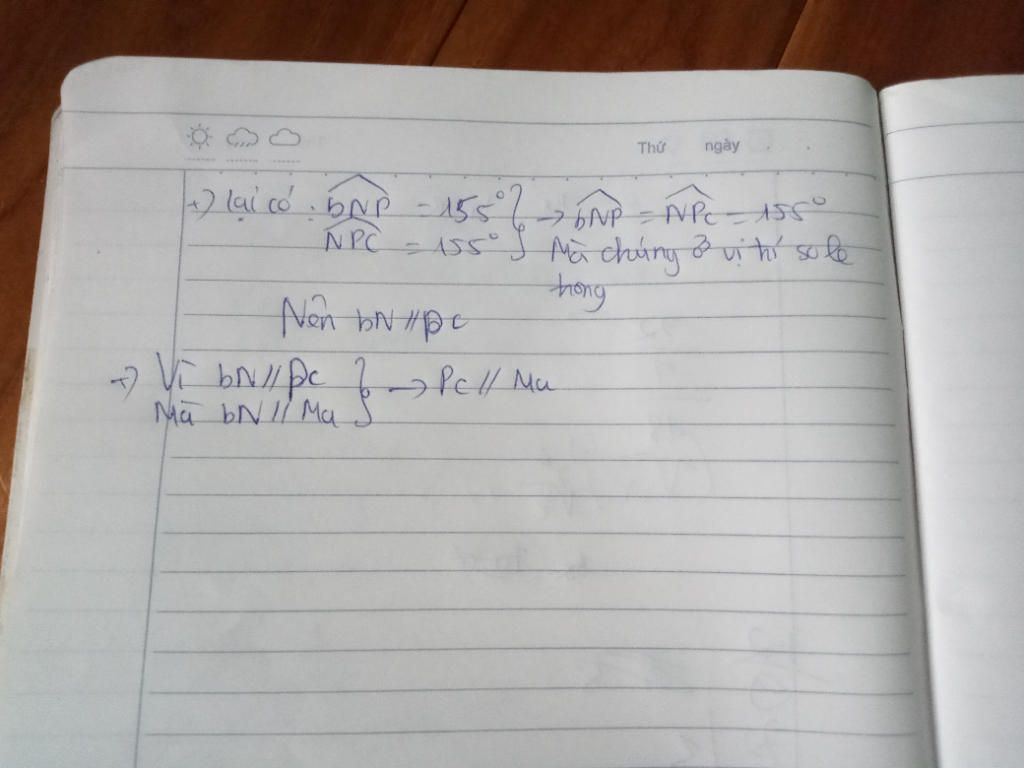 Thứ ngày
+) lại có : bNP = 155° } → bNP = NPc = 155°
NPC = 155° } Mà chúng ở vị trí so le
trong
Nên bN // pc
+) Vì bN // pc } → Pc // Ma
Mà bN // Ma }